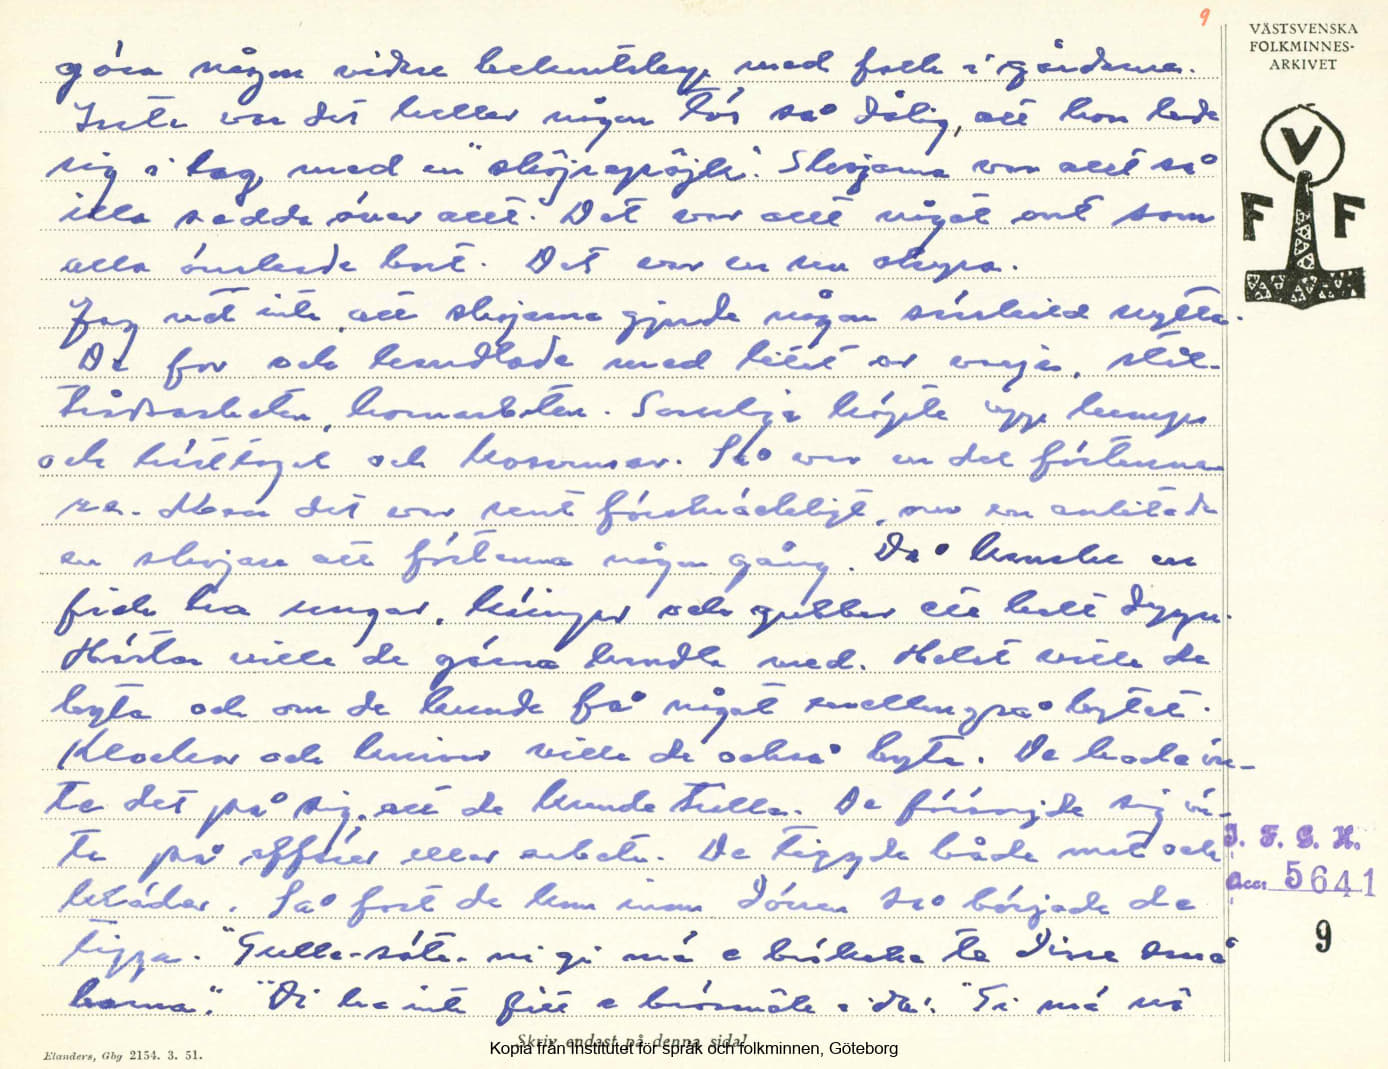 9
VÄSTSVENSKA
FOLKMINNES-
ARKIVET
V
F F
göra någon vidare bekantskap med folk i gårdarna.
Inte var det heller någon tös så dålig, att hon lade
sig i lag med en "skojarepöjk". Skojarna var allt så
illa sedda över allt. Det var allt något ont som
alla önskade bort. Det var en ren
Jag vet inte, att skojarna gjorde någon särskild nytta.
De for och handlade med litet av varje, stål-
trådsarbeten, hornarbeten. Somliga köpte upp lump
och hästtagel och Så var en del förtennare
re. Men det var rent förskräckligt, när en anlitade
en skojare att förtenna någon gång. Då kanske en
fick ha ungar, käringar och gubbar ett helt dygn.
Hästar ville de gärna handla med. Helst ville de
byta och om de kunde få något emellan på bytet.
Klockor och knivar ville de också byta. De hade in-
te det på sig, att de kunde tralla. De försörjde sig in-
te på affärer eller arbete. De tiggde både mat och
kläder. Så fort de kom inom dörren så började de
tigga. "Gulle-söta. ni gi mä e te disse små
barna". "Di ha inte fått e brösmåle i da". "Gi mä nå
I. F. G. H.
Acc: 5641
9
Skriv endast på denna sida!
Kopia från Institutet för språk och folkminnen, Göteborg
Elanders, Gbg 2154. 3. 51.